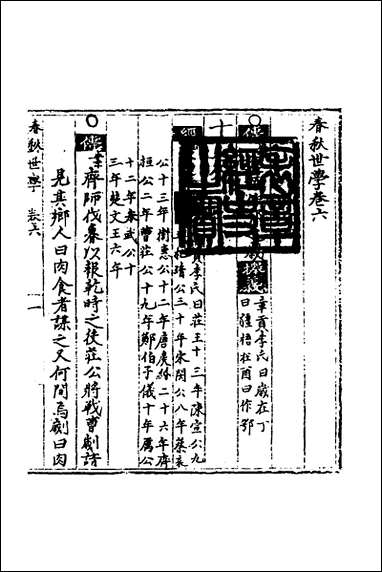 春秋世學卷六
傳
義
章貢李氏曰歲在丁
曰疆梧在酉曰作鄂
十
經
貢李氏曰莊王十三年陳宣公九
杞靖公二十年宋閔公八年蔡哀
公十三年衛惠公十二年晉侯緡二十六年齊
桓公二年曹莊公十九年鄭伯子儀十年厲公
十二年秦武公十
三年楚文王六年
傳
齊師伐魯以報乾時之役莊公將戰曹劌請
見其鄉人曰肉食者謀之又何間焉劌曰肉
春秋世學 卷六 一